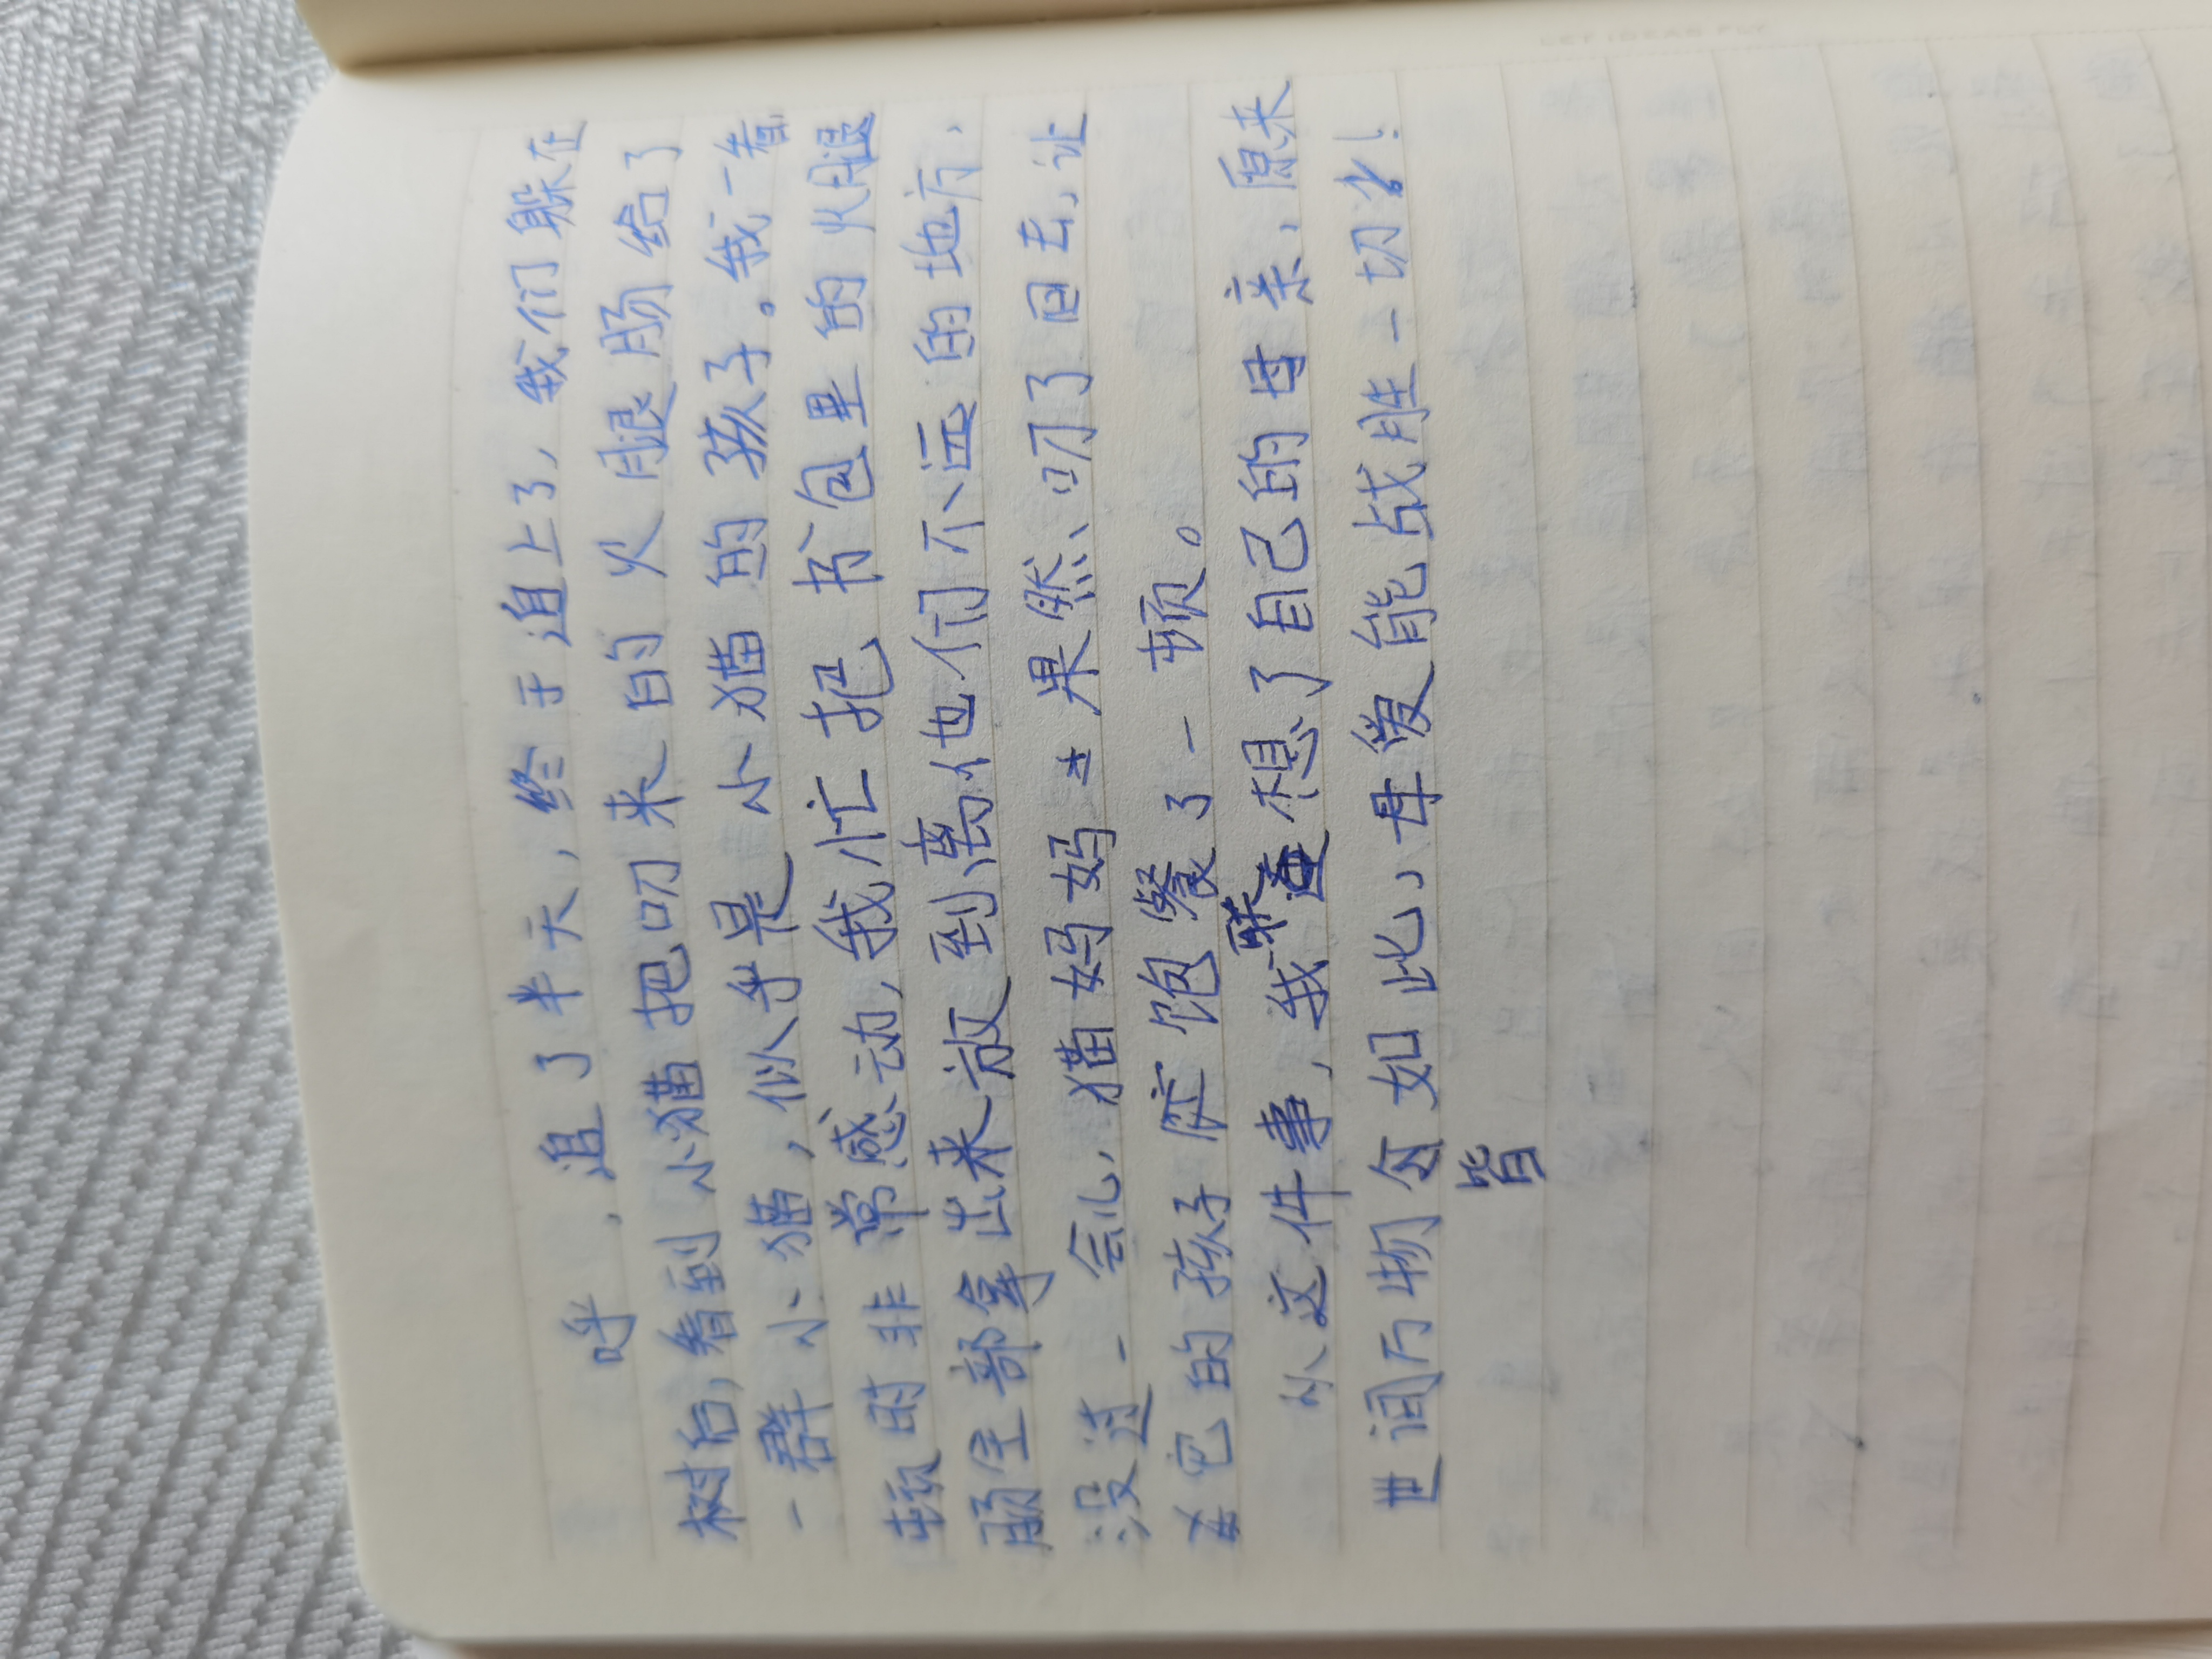 呼,追了半天,终于追上了,我们躲在
树后,看到小猫把叼来的火腿肠给了
一群小猫,似乎是小猫的孩子。我一看
顿时非常感动,我忙把书包里的火腿
肠全部拿出来放到离他们不远的地方,
没过一会儿,猫妈妈果然叼了回去,让
它的孩子们饱餐了一顿。
从这件事,我联想了自己的母亲,原来
世间万物皆如此,母爱能战胜一切!